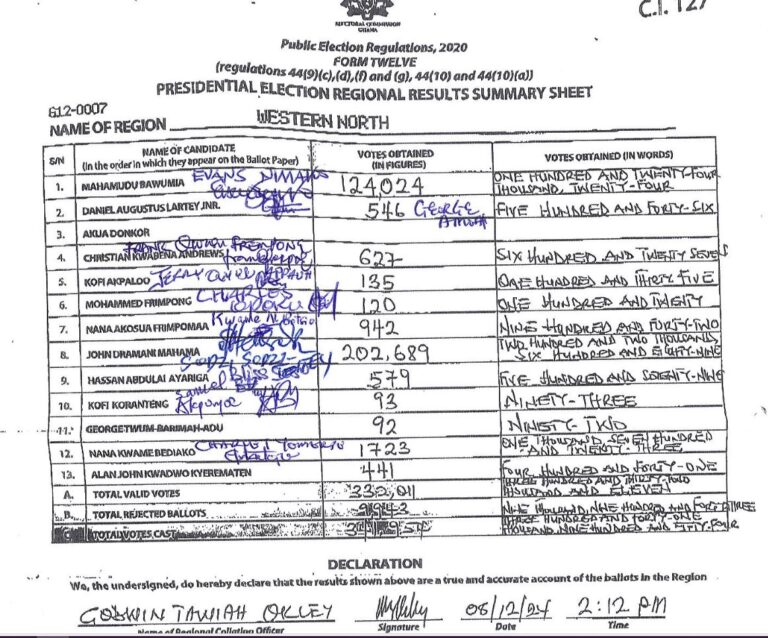 C.I. 127
ELECTORAL COMMISSION
GHANA
Public Election Regulations, 2020
FORM TWELVE
(regulations 44(9)(c),(d),(f) and (g), 44(10) and 44(10)(a))
PRESIDENTIAL ELECTION REGIONAL RESULTS SUMMARY SHEET
G12-0007
NAME OF REGION WESTERN NORTH
S/N NAME OF CANDIDATE (In the order in which they appear on the Ballot Paper) VOTES OBTAINED (IN FIGURES) VOTES OBTAINED (IN WORDS)
1. MAHAMUDU BAWUMIA EVANS 124,024 ONE HUNDRED AND TWENTY-FOUR THOUSAND, TWENTY-FOUR
2. DANIEL AUGUSTUS LARTEY JNR. 546 GEORGE FIVE HUNDRED AND FORTY-SIX
3. AKUA DONKOR
FRANK
4. CHRISTIAN KWABENA ANDREWS 627 SIX HUNDRED AND TWENTY SEVEN
5. KOFI AKPALOO 135 ONE HUNDRED AND THIRTY FIVE
6. MOHAMMED FRIMPONG CHARLES 120 ONE HUNDRED AND TWENTY
7. NANA AKOSUA FRIMPOMAA Kwame 942 NINE HUNDRED AND FORTY-TWO
8. JOHN DRAMANI MAHAMA 202,689 TWO HUNDRED AND TWO THOUSAND, SIX HUNDRED AND EIGHTY-NINE
9. HASSAN ABDULAI AYARIGA 579 FIVE HUNDRED AND SEVENTY-NINE
Samuel
10. KOFI KORANTENG 93 NINETY-THREE
11. GEORGE TWUM-BARIMAH-ADU 92 NINETY-TWO
12. NANA KWAME BEDIAKO 1723 ONE THOUSAND, SEVEN HUNDRED AND TWENTY-THREE
13. ALAN JOHN KWADWO KYEREMATEN 441 FOUR HUNDRED AND FORTY-ONE
A. TOTAL VALID VOTES 332,011 THREE HUNDRED AND THIRTY-TWO THOUSAND AND ELEVEN
B. TOTAL REJECTED BALLOTS 9943 NINE THOUSAND, NINE HUNDRED AND FORTY THREE
C. TOTAL VOTES CAST 341,954 THREE HUNDRED AND FORTY-ONE THOUSAND, NINE HUNDRED AND FIFTY-FOUR
DECLARATION
We, the undersigned, do hereby declare that the results shown above are a true and accurate account of the ballots in the Region
GODWIN TAWIAH OKLEY 08/12/24 2:12 PM
Name of Regional Collation Officer Signature Date Time